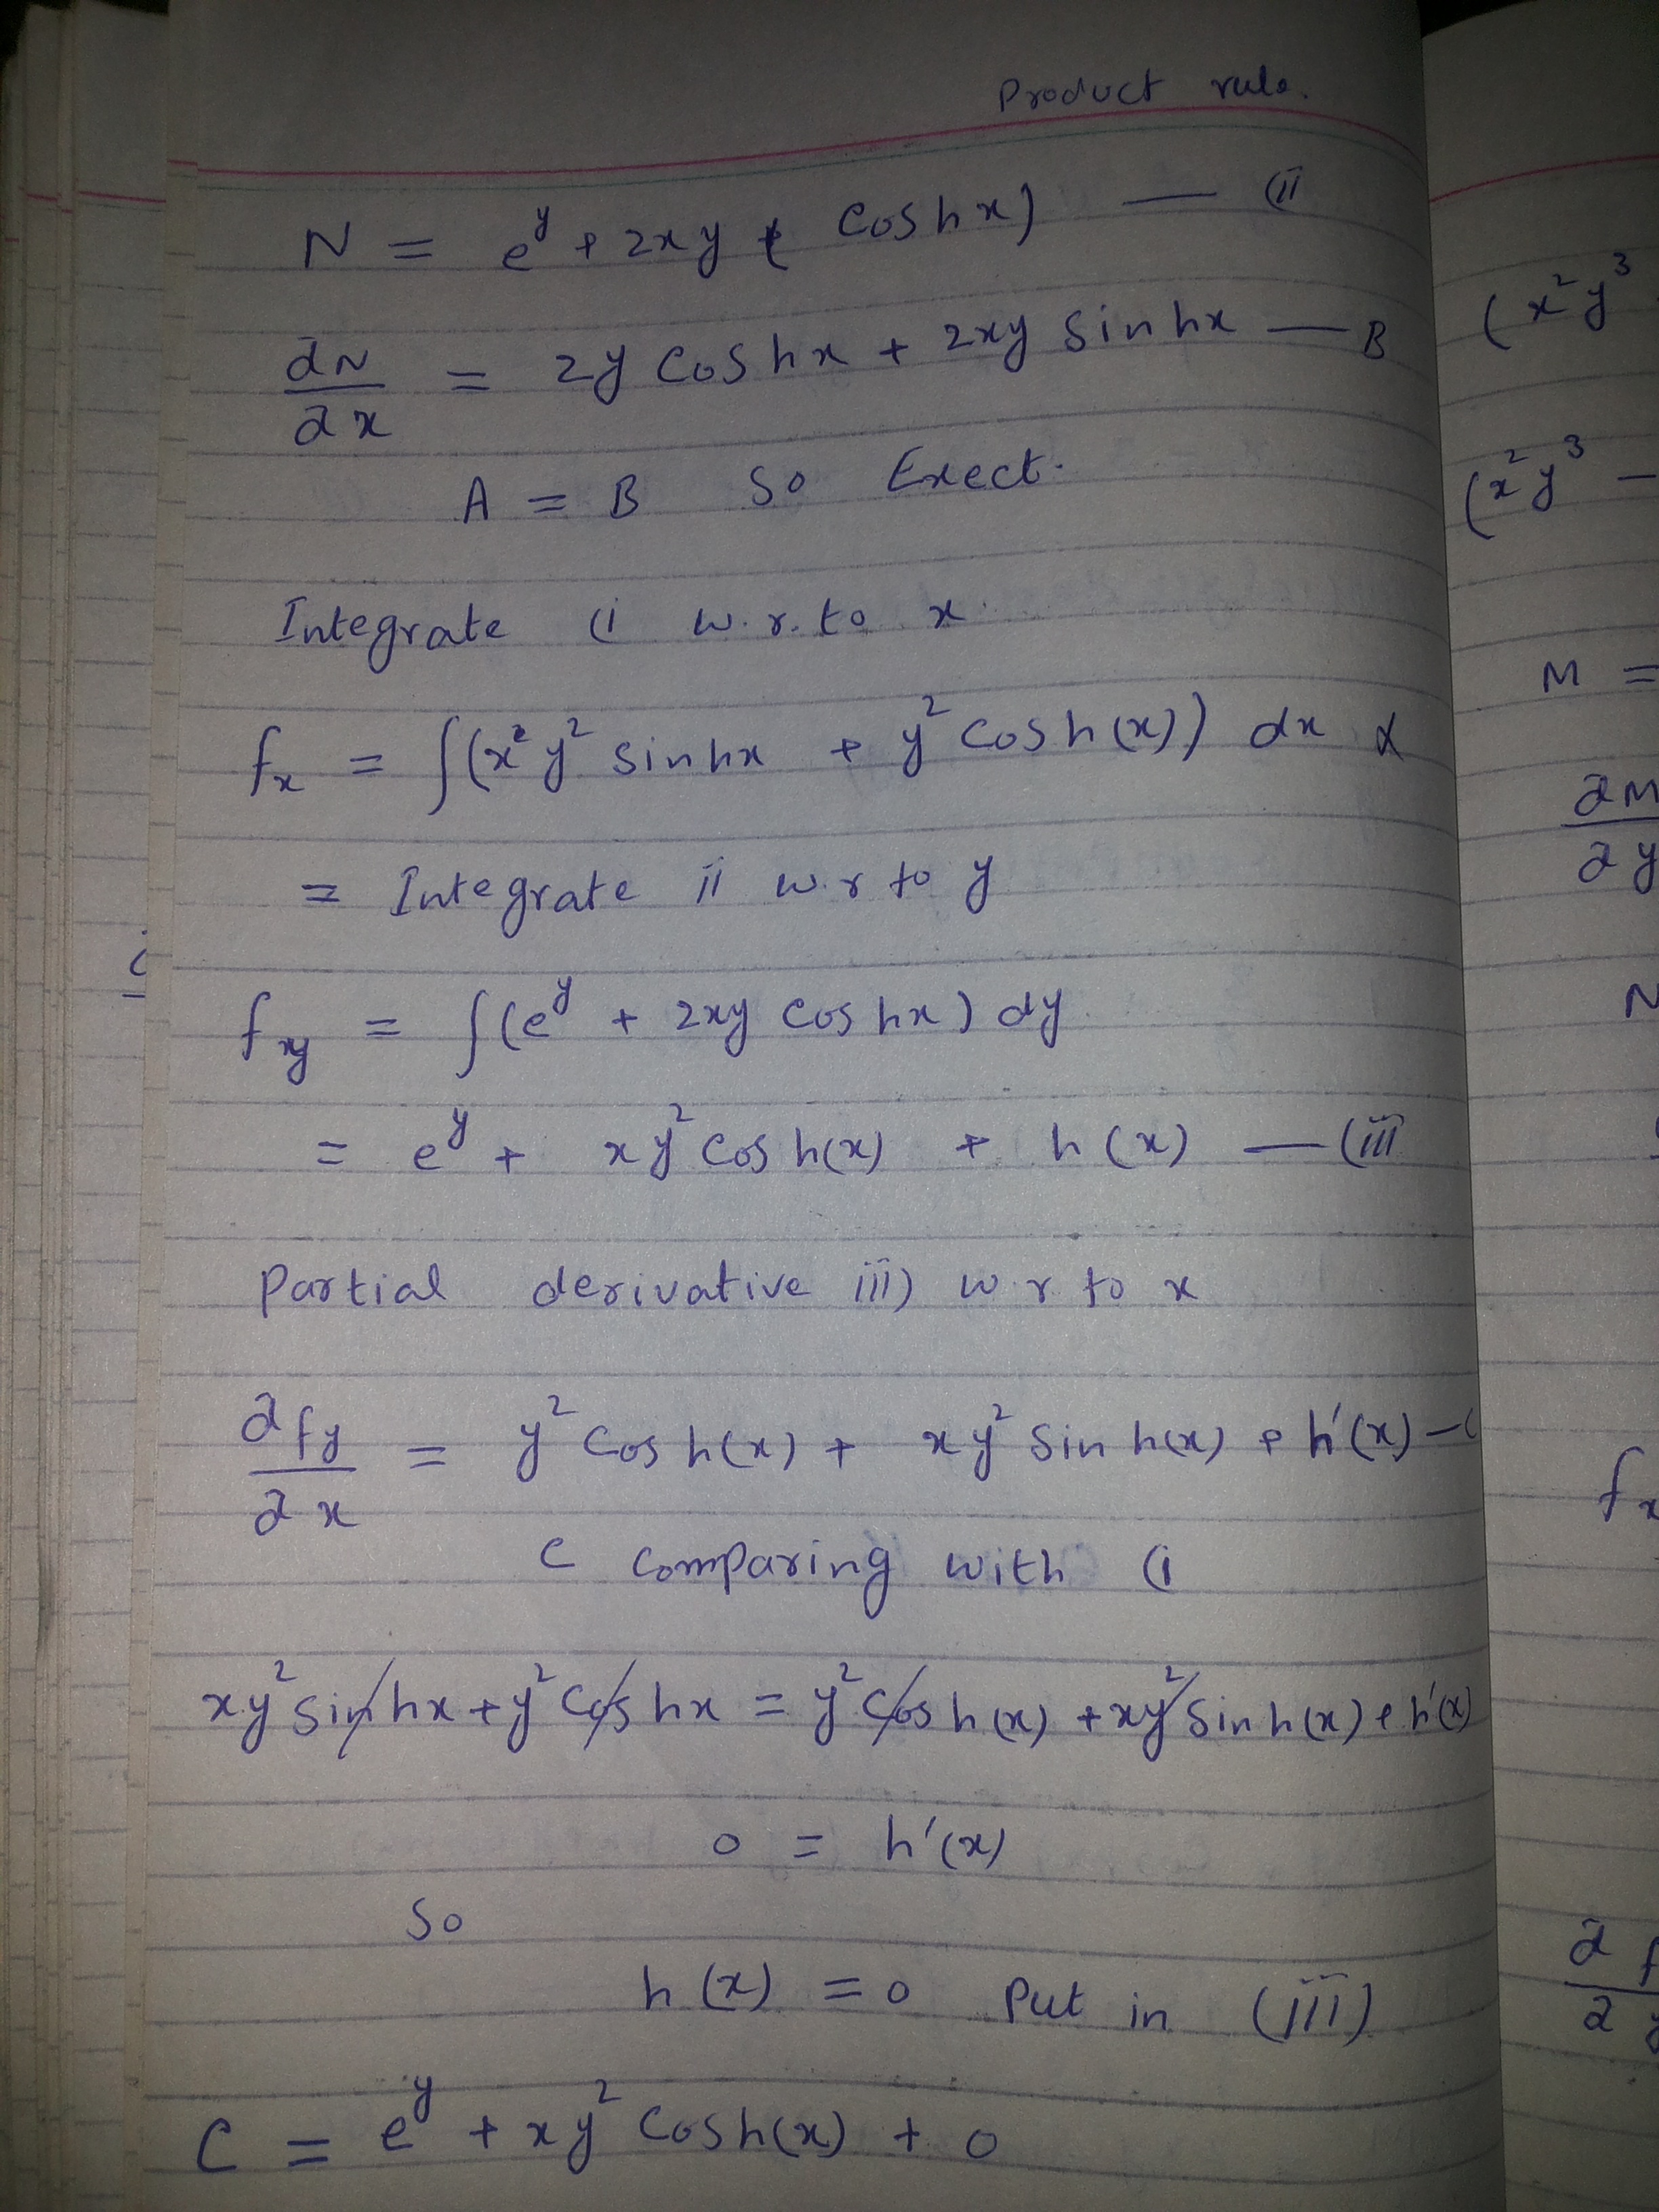 Product rule.
N = e^y + 2xy ( cosh x) — (ii
∂N/∂x = 2y cosh x + 2xy sinh x — B
A = B so Exect.
Integrate (i w.r.to x.
f_x = ∫(x²y² sinhx + y² cosh(x)) dx
= Integrate ii w.r to y
f_xy = ∫(e^y + 2xy coshx) dy
= e^y + xy² cosh(x) + h(x) — (iii
Partial derivative iii) w r to x
∂fy/∂x = y² cosh(x) + xy² sinh(x) + h'(x) — C
C comparing with (i
xy² sinhx + y² coshx = y² cosh(x) + xy² sinh(x) + h'(x)
0 = h'(x)
So
h(x) = 0 Put in (iii)
C = e^y + xy² cosh(x) + 0
(x²y³
(x²y³ –
M =
∂M
∂y
N
f_x